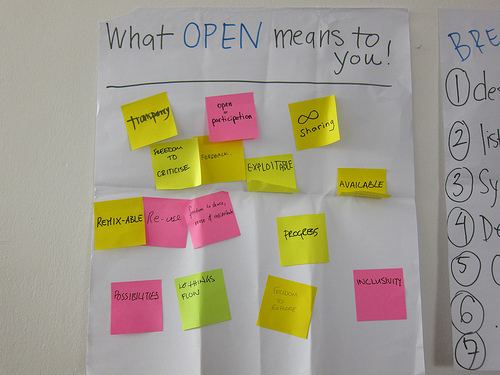 What OPEN means to
you!
Transparency
open
participation
∞
sharing
FREEDOM
TO
CRITICISE
FEEDBACK...
EXPLOITABLE
AVAILABLE
REMIX-ABLE
Re-use
freedom to share,
PROGRESS
POSSIBILITIES
LET THINGS
FLOW
FREEDOM
TO
EXPLORE
INCLUSIVITY
BRE
1 de
2 list
3 Sy
4 De
5
6
7